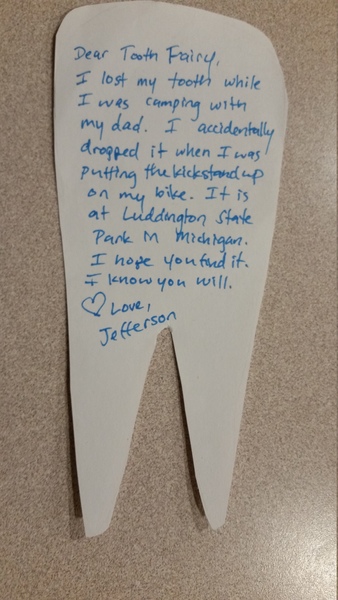 Dear Tooth Fairy,
I lost my tooth while
I was camping with
my dad. I accidentally
dropped it when I was
putting the kickstand up
on my bike. It is
at Luddington State
Park in Michigan.
I hope you find it.
I know you will.
♡ Love,
Jefferson